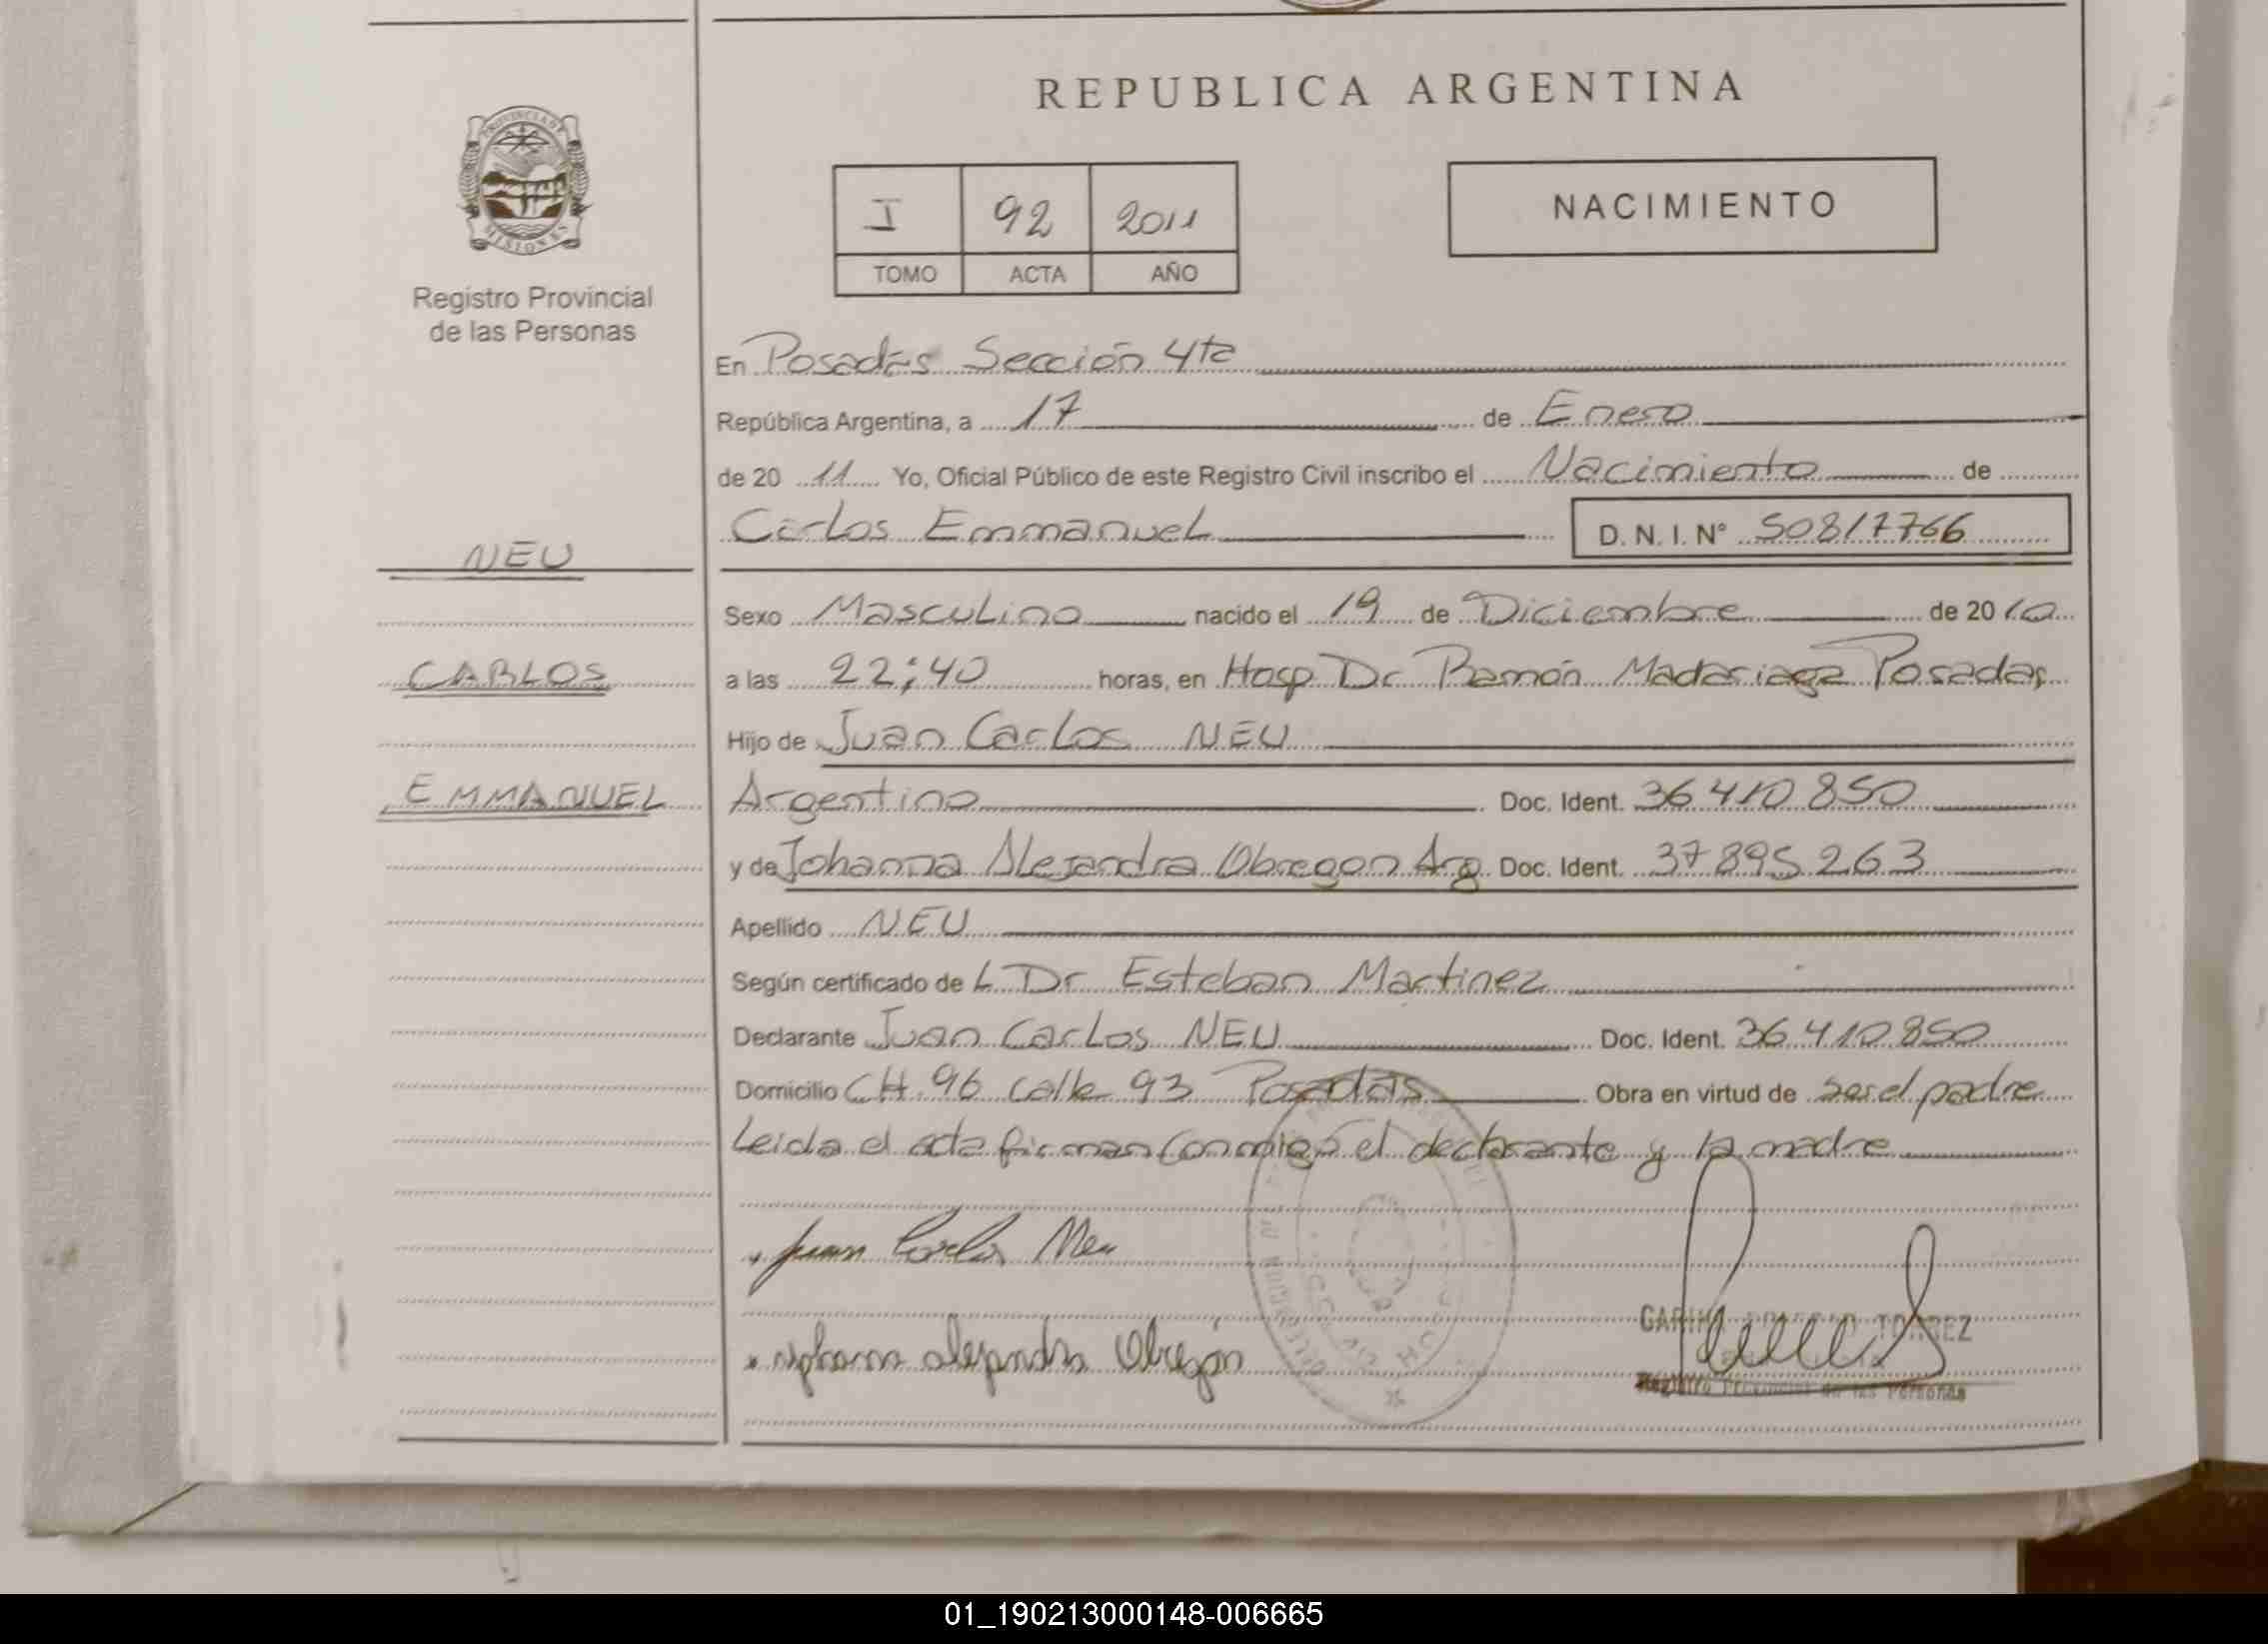 REPUBLICA ARGENTINA
PROVINCIA DE
MISIONES
Registro Provincial
de las Personas
I 92 2011
TOMO ACTA AÑO
NACIMIENTO
En Posadas Sección 4ta
República Argentina, a 17 de Enero
de 20 11 Yo, Oficial Público de este Registro Civil inscribo el Nacimiento de
Carlos Emmanuel D. N. I. N° 50817766
NEU
CARLOS
EMMANUEL
Sexo Masculino nacido el 19 de Diciembre de 20 10
a las 22:40 horas, en Hosp Dr Ramón Madariaga Posadas
Hijo de Juan Carlos NEU
Argentino Doc. Ident. 36 410 850
y de Johanna Alejandra Obregon Arg Doc. Ident. 37 895 263
Apellido NEU
Según certificado de L Dr Esteban Martinez
Declarante Juan Carlos NEU Doc. Ident. 36 410 850
Domicilio CH. 96 calle 93 Posadas Obra en virtud de ser el padre
Leida el acta firman conmigo el declarante y la madre
Juan Carlos Neu
alejandra Obregón
Registro Provincial de las Personas
01_190213000148-006665